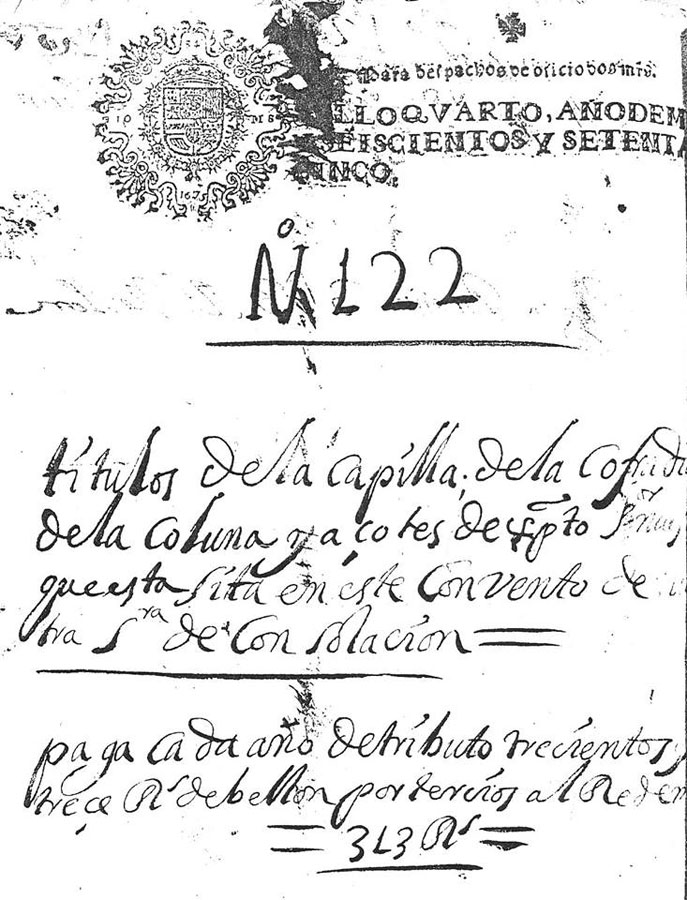 Para despachos de oficio dos mrs.
SELLO QVARTO, AÑO DE M
SEISCIENTOS Y SETENTA
CINCO.
1675
No 122
titulos de la capilla. de la cofradia
de la coluna y açotes de xpto
que esta sita en este convento de
tra Sra de Consolacion =
paga cada año de tributo trecientos y
treçe Rs de bellon por tercios al Redem
= 313 Rs =